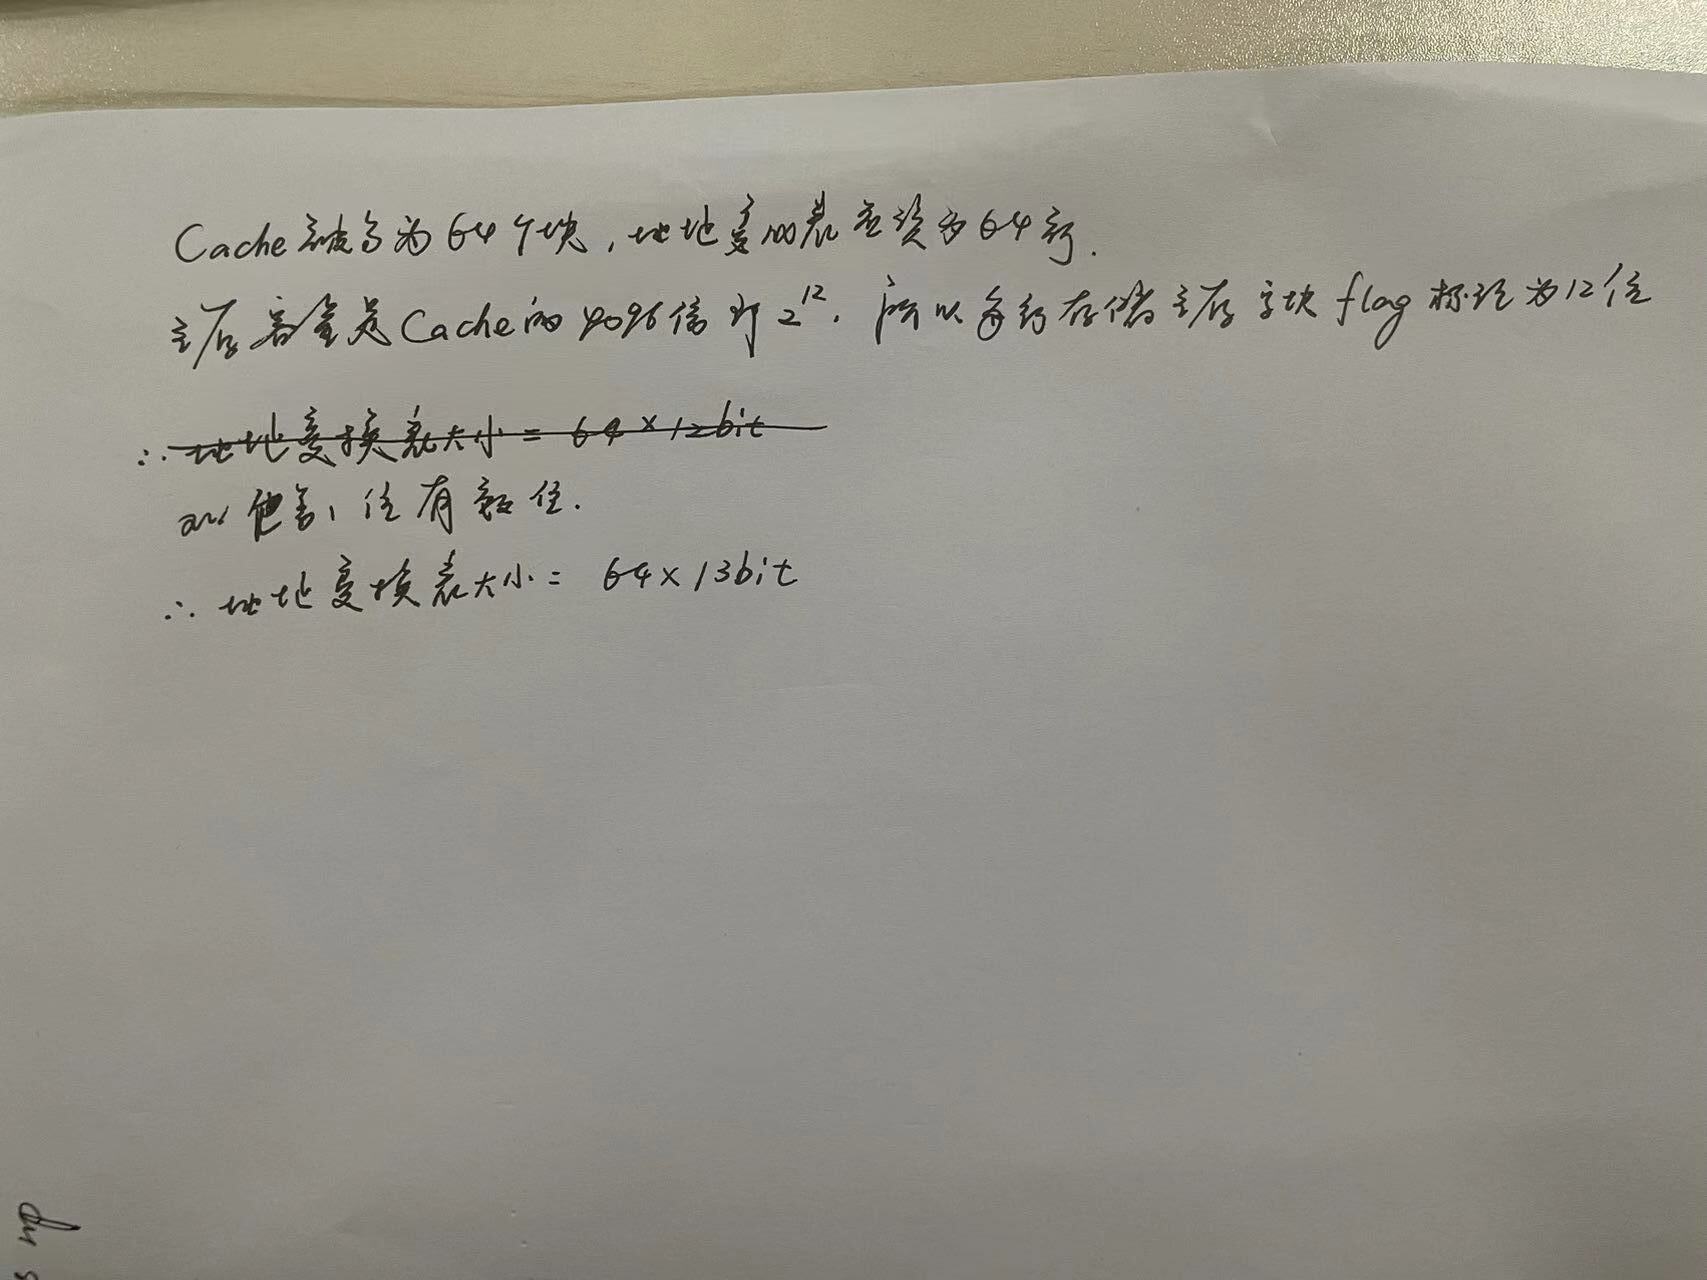 Cache被分为64个块,地址变换表应该为64行.
主存容量是Cache的4096倍即2^12.所以每行存储主存字块flag标记为12位
∴ 地址变换表大小 = 64×12bit
包含1位有效位.
∴ 地址变换表大小 = 64×13bit
du